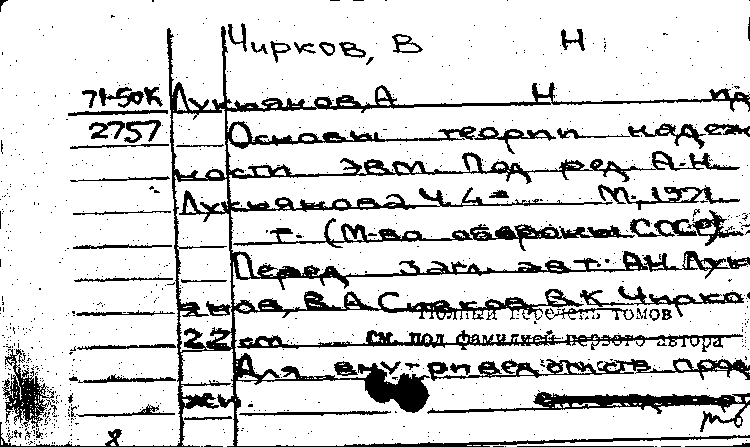 Чирков, В Н
71-50К Лукьянов, А Н
2757 Основы теории надеж
ности ЭВМ. Под ред. А.Н.
Лукьянова Ч. 4- М., 1971.
т. (М-во обороны СССР)
Перед загл. авт.: А.Н. Лук
янов, В.А. Сивков, В.К. Чирко
Полный перечень томов
22 см см. под фамилией первого автора
Для внутриведомств. прод
жи.